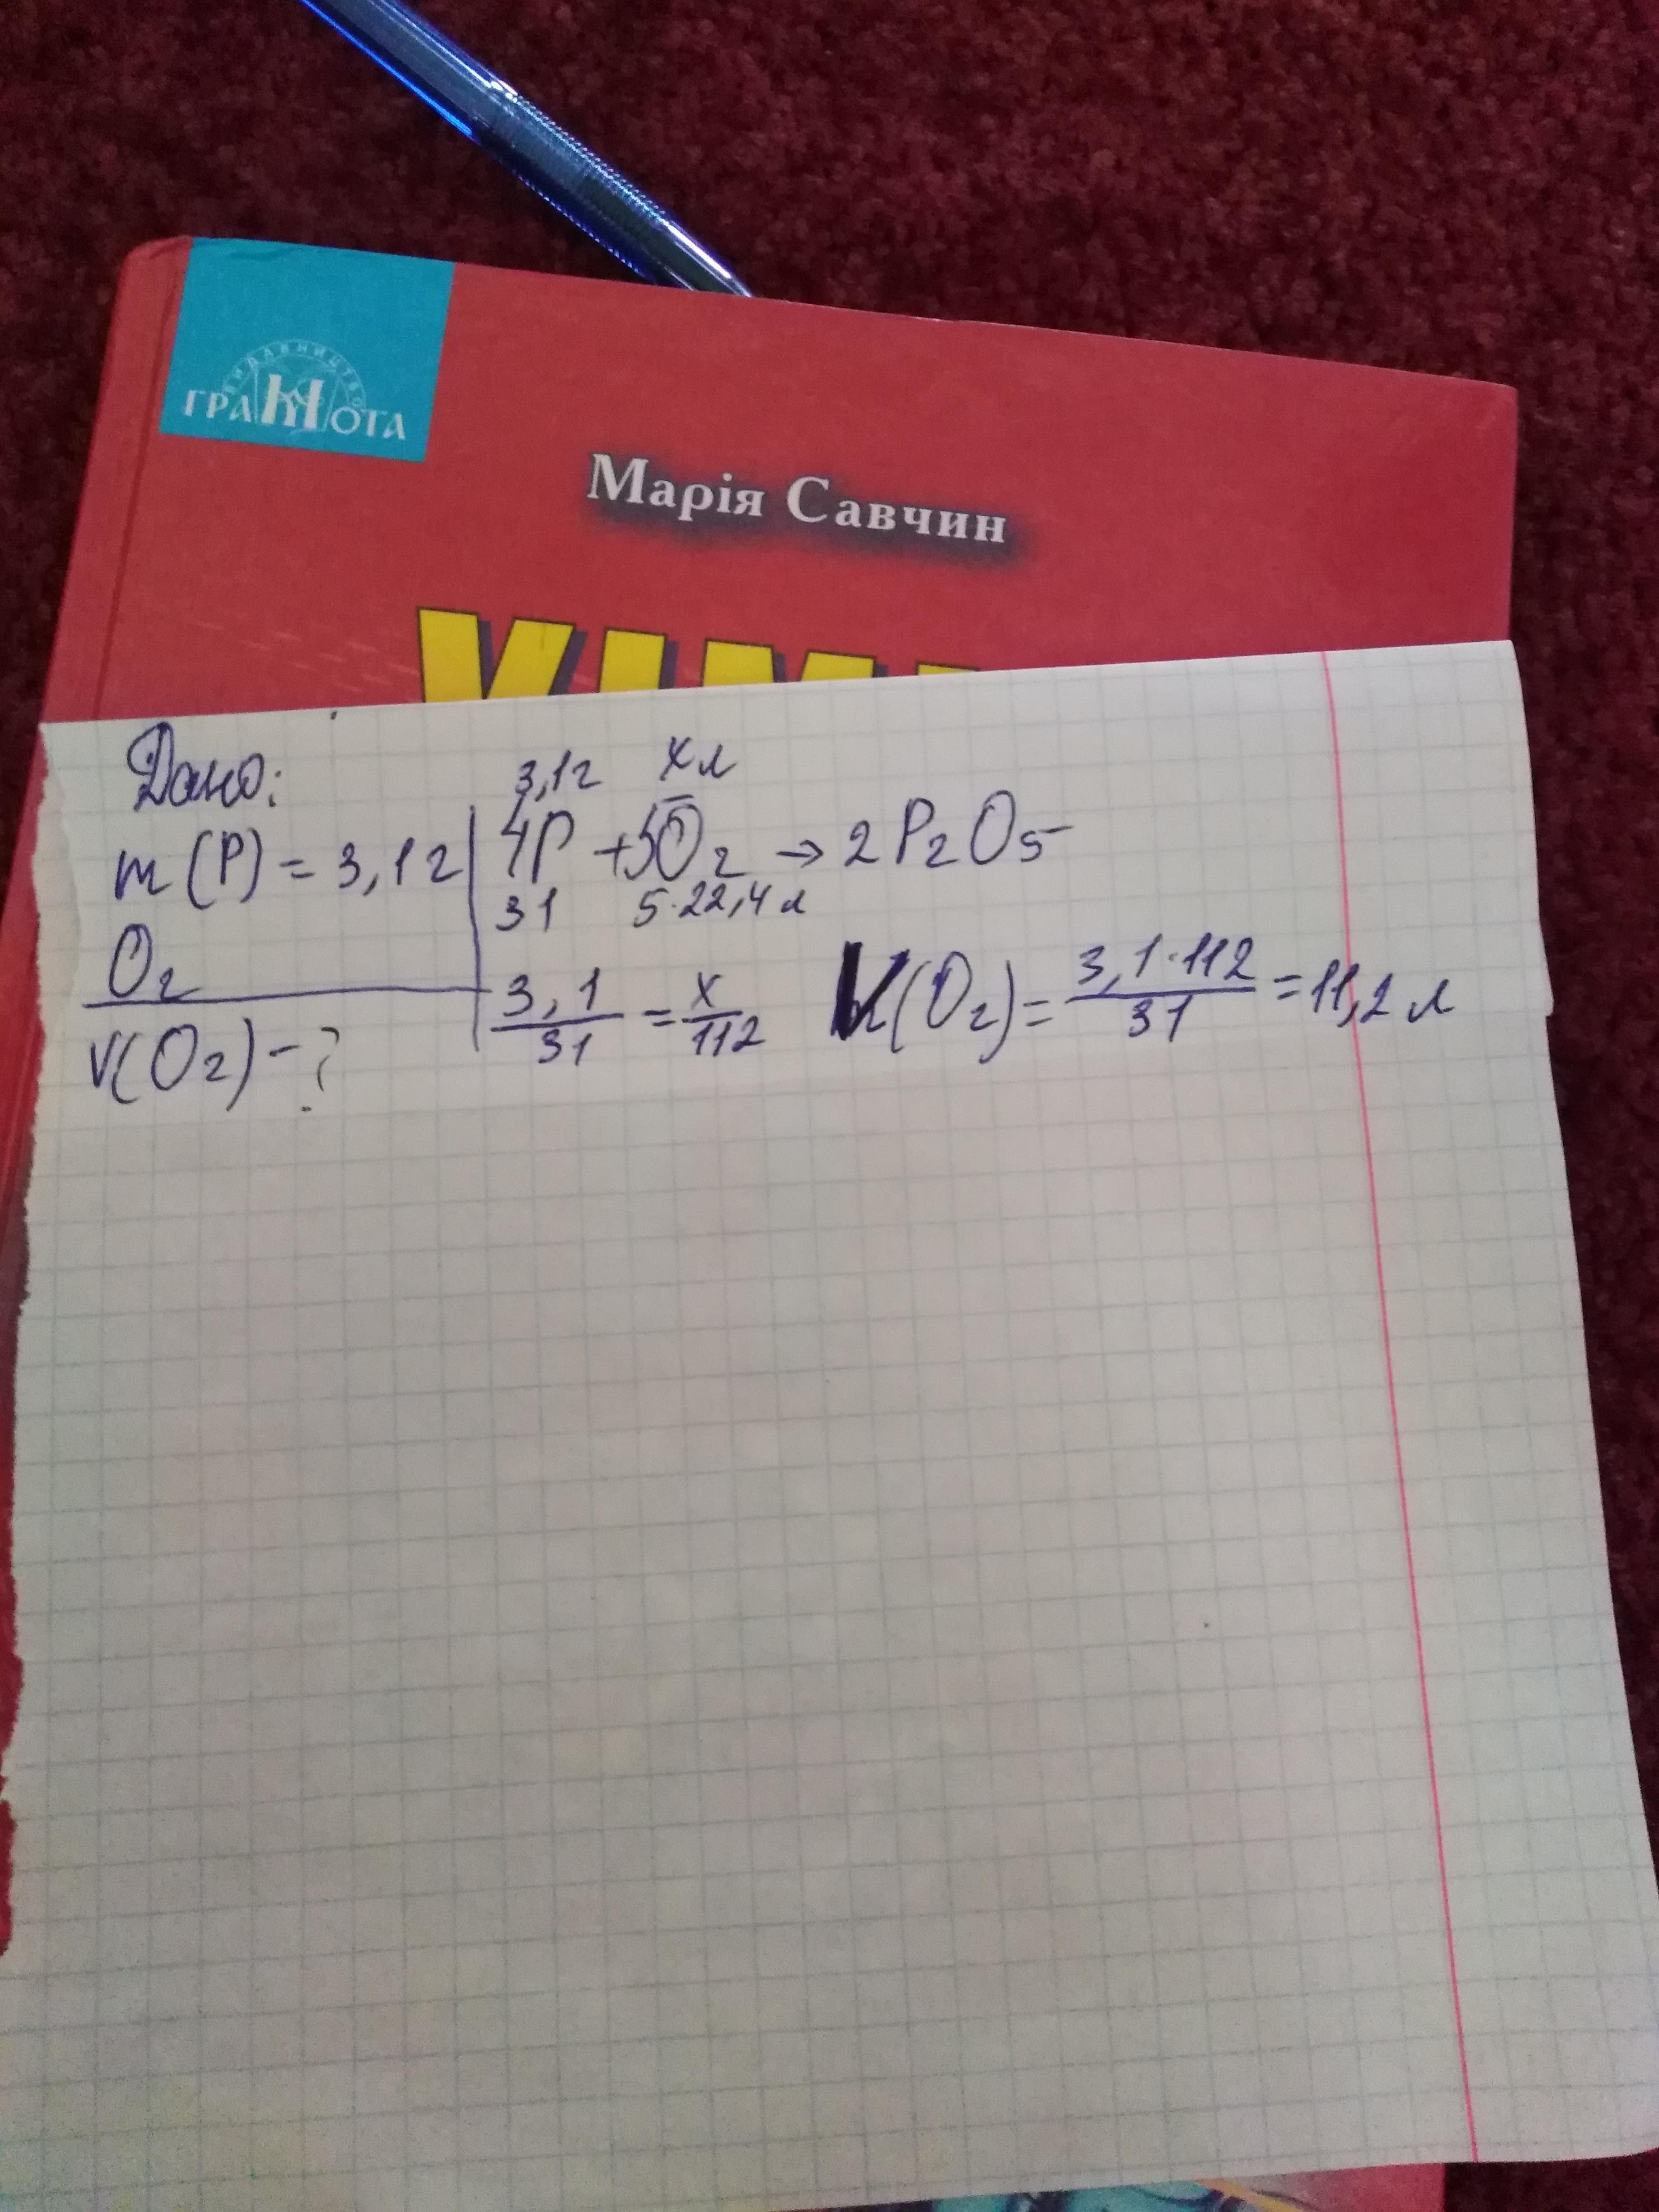 ВИДАВНИЦТВО
ГРАМОТА
Марія Савчин
Дано:
m(P) = 3,1 г
O₂
V(O₂) - ?
3,1 г x л
4P + 5O₂ → 2P₂O₅
31 5·22,4 л
3,1/31 = x/112 V(O₂) = 3,1·112/31 = 11,2 л